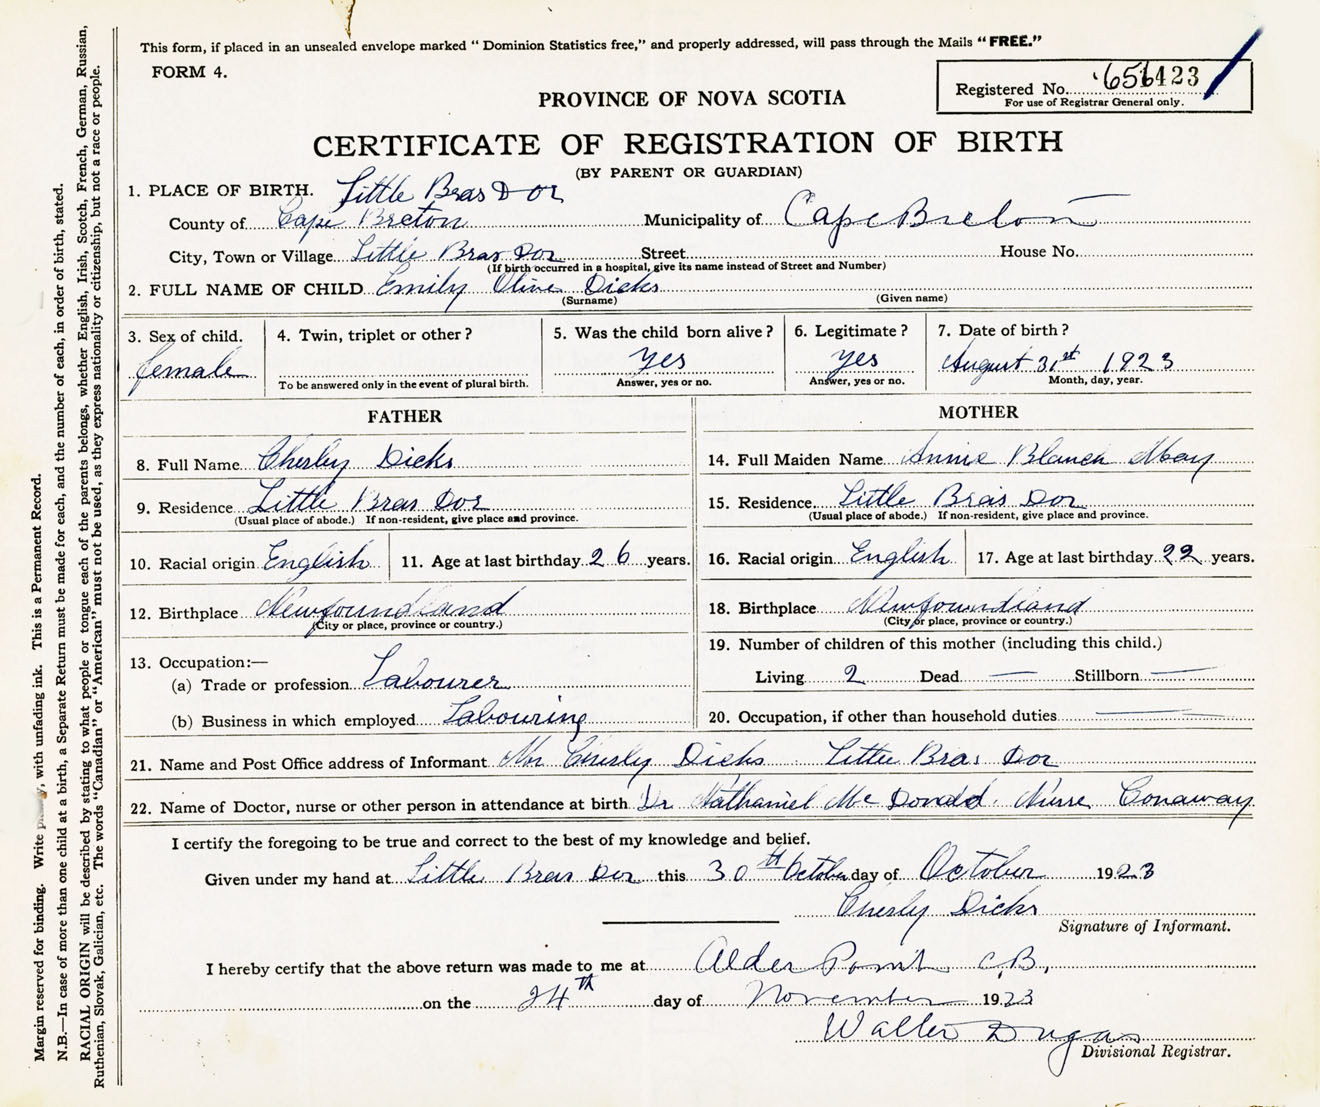 This form, if placed in an unsealed envelope marked "Dominion Statistics free," and properly addressed, will pass through the Mails "FREE."
FORM 4.
Registered No. 423
For use of Registrar General only.
PROVINCE OF NOVA SCOTIA
CERTIFICATE OF REGISTRATION OF BIRTH
(BY PARENT OR GUARDIAN)
1. PLACE OF BIRTH. Little Bras Dor
County of Cape Breton Municipality of Cape Breton
City, Town or Village Little Bras Dor Street House No.
(If birth occurred in a hospital, give its name instead of Street and Number)
2. FULL NAME OF CHILD Emily Olive Dicks
(Surname) (Given name)
3. Sex of child. female
4. Twin, triplet or other?
To be answered only in the event of plural birth.
5. Was the child born alive? yes
Answer, yes or no.
6. Legitimate? yes
Answer, yes or no.
7. Date of birth?
August 31st 1923
Month, day, year.
FATHER
8. Full Name Chesley Dicks
9. Residence Little Bras Dor
(Usual place of abode.) If non-resident, give place and province.
10. Racial origin English 11. Age at last birthday 26 years.
12. Birthplace Newfoundland
(City or place, province or country.)
13. Occupation:—
(a) Trade or profession Labourer
(b) Business in which employed Labouring
MOTHER
14. Full Maiden Name Annie Blanch May
15. Residence Little Bras Dor
(Usual place of abode.) If non-resident, give place and province.
16. Racial origin English 17. Age at last birthday 22 years.
18. Birthplace Newfoundland
(City or place, province or country.)
19. Number of children of this mother (including this child.)
Living 2 Dead — Stillborn —
20. Occupation, if other than household duties —
21. Name and Post Office address of Informant Mr Chesley Dicks Little Bras Dor
22. Name of Doctor, nurse or other person in attendance at birth Dr Nathaniel Mc Donald. Nurse Conaway
I certify the foregoing to be true and correct to the best of my knowledge and belief.
Given under my hand at Little Bras Dor this 30th October day of October 1923
Chesley Dicks
Signature of Informant.
I hereby certify that the above return was made to me at Alder Point C.B.,
on the 24th day of November 1923
Walter Dugas
Divisional Registrar.
Margin reserved for binding. Write, with unfading ink. This is a Permanent Record.
N.B.—In case of more than one child at a birth, a Separate Return must be made for each, and the number of each, in order of birth, stated.
RACIAL ORIGIN will be described by stating to what people or tongue each of the parents belongs, whether English, Irish, Scotch, French, German, Russian,
Ruthenian, Slovak, Galician, etc. The words "Canadian" or "American" must not be used, as they express nationality or citizenship, but not a race or people.